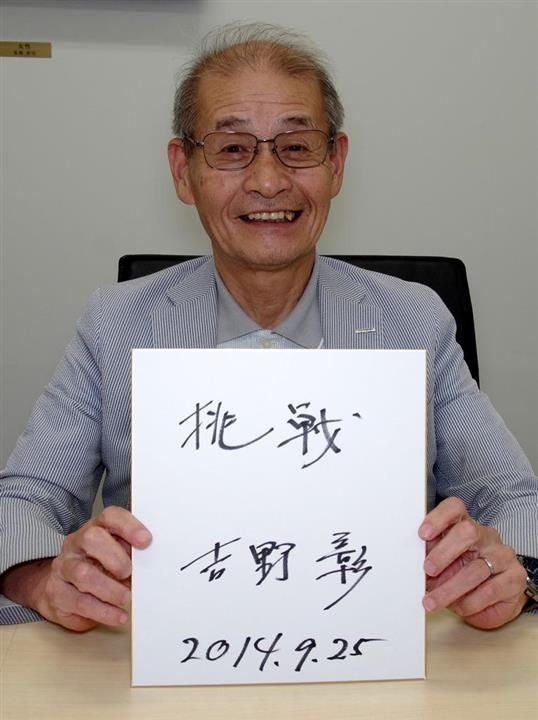 挑戦
吉野 彰
2014.9.25